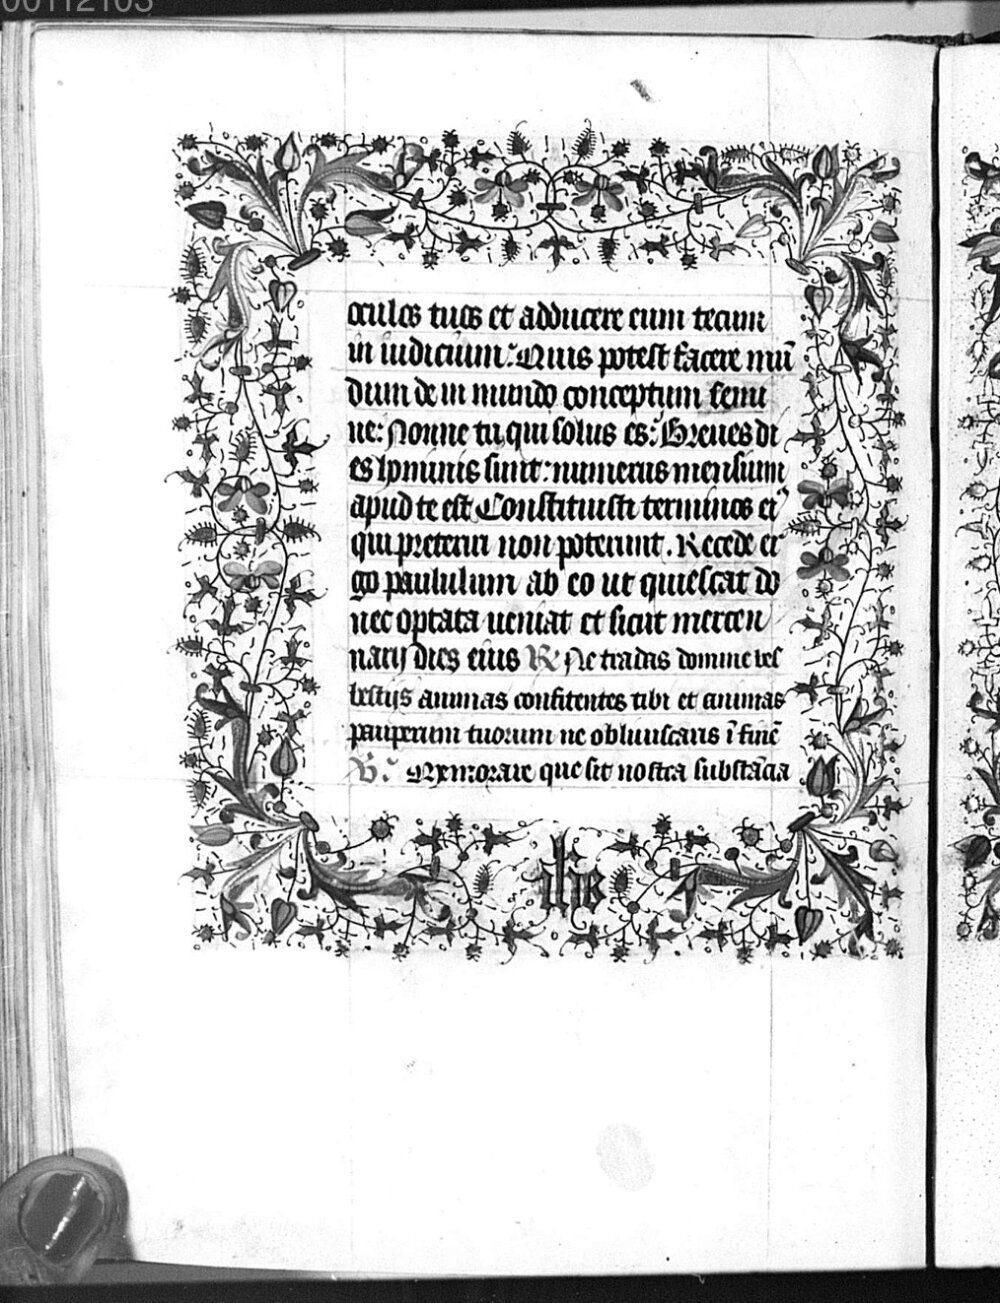 00112103
oculos tuos et adducere eum tecum
in iudicium: Quis potest facere mū
dum de in mundo conceptum semi
ne: Nonne tu qui solus es: Breues di
es hominis sunt: numerus mensium
apud te est Constituisti terminos ei⁹
qui preteriri non poterunt. Recede er
go paululum ab eo ut quiescat do
nec optata ueniat et sicut mercen
narij dies eius R Ne tradas domine bes
bestijs animas confitentes tibi et animas
pauperum tuorum ne obliuiscaris ī finē
V. Memorare que sit nostra substācia
ihs